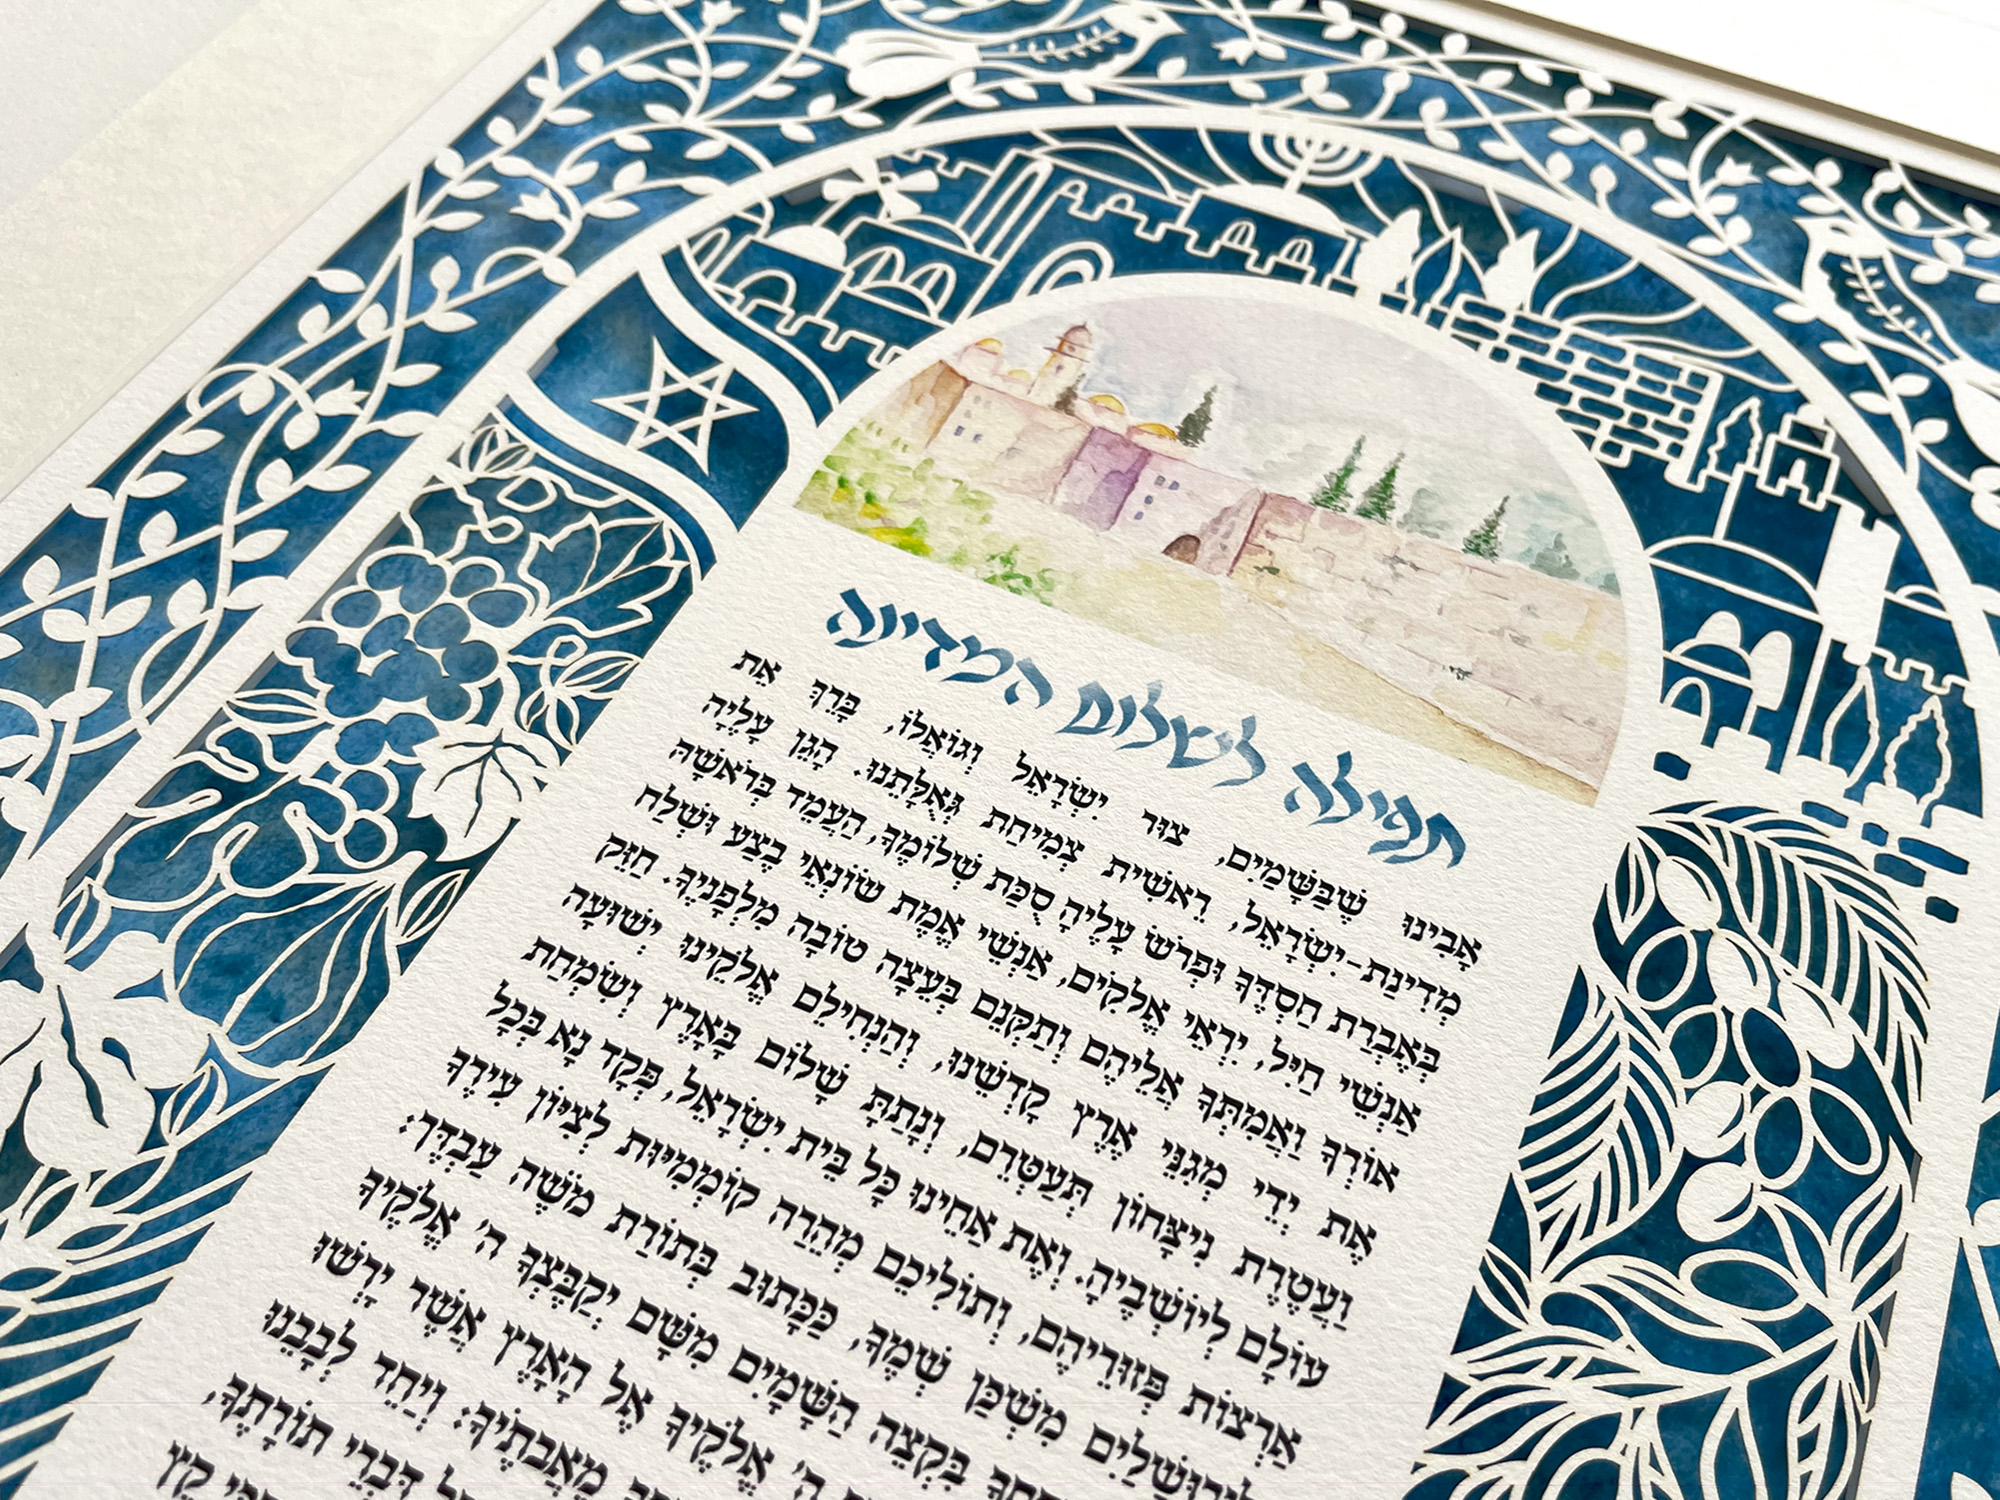 תפילה לשלום המדינה
אָבִינוּ שֶׁבַּשָּׁמַיִם, צוּר יִשְׂרָאֵל וְגוֹאֲלוֹ, בָּרֵךְ אֵת
מְדִינַת-יִשְׂרָאֵל, רֵאשִׁית צְמִיחַת גְּאֻלָּתֵנוּ. הָגֵן עָלֶיהָ
בְּאֶבְרַת חַסְדֶּךָ וּפְרֹשׂ עָלֶיהָ סֻכַּת שְׁלוֹמֶךָ, הַעֲמֵד בְּרֹאשָׁהּ
אַנְשֵׁי חַיִל, יִרְאֵי אֱלֹקִים, אַנְשֵׁי אֱמֶת שׂוֹנְאֵי בֶצַע וּשְׁלַח
אוֹרְךָ וַאֲמִתְּךָ אֲלֵיהֶם וְתַקְּנֵם בְּעֵצָה טוֹבָה מִלְּפָנֶיךָ. חַזֵּק
אֶת יְדֵי מְגִנֵּי אֶרֶץ קָדְשֵׁנוּ, וְהַנְחִילֵם אֱלֹקֵינוּ יְשׁוּעָה
וַעֲטֶרֶת נִיצָּחוֹן תְּעַטְּרֵם, וְנָתַתָּ שָׁלוֹם בָּאָרֶץ וְשִׂמְחַת
עוֹלָם לְיוֹשְׁבֶיהָ. וְאֶת אַחֵינוּ כָּל בֵּית יִשְׂרָאֵל, פְּקָד נָא בְּכָל
אַרְצוֹת פְּזוּרֵיהֶם, וְתוֹלִיכֵם מְהֵרָה קוֹמְמִיּוּת לְצִיּוֹן עִירֶךָ
לִירוּשָׁלַיִם מִשְׁכַּן שְׁמֶךָ, כַּכָּתוּב בְּתוֹרַת מֹשֶׁה עַבְדֶּךָ:
בִּקְצֵה הַשָּׁמָיִם מִשָּׁם יְקַבֶּצְךָ ה' אֱלֹקֶיךָ
ה' אֱלֹקֶיךָ אֶל הָאָרֶץ אֲשֶׁר יָרְשׁוּ
מֵאֲבֹתֶיךָ: וְיַחֵד לְבָבֵנוּ
דִּבְרֵי תוֹרָתֶךָ,
קֵץ